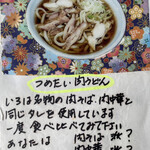 つめたい肉うどん
いろは名物の肉そば、肉中華と
同じタレを使用しています
一度食べ比べてみて下さい
あなたは 肉そば派?
肉中華派?